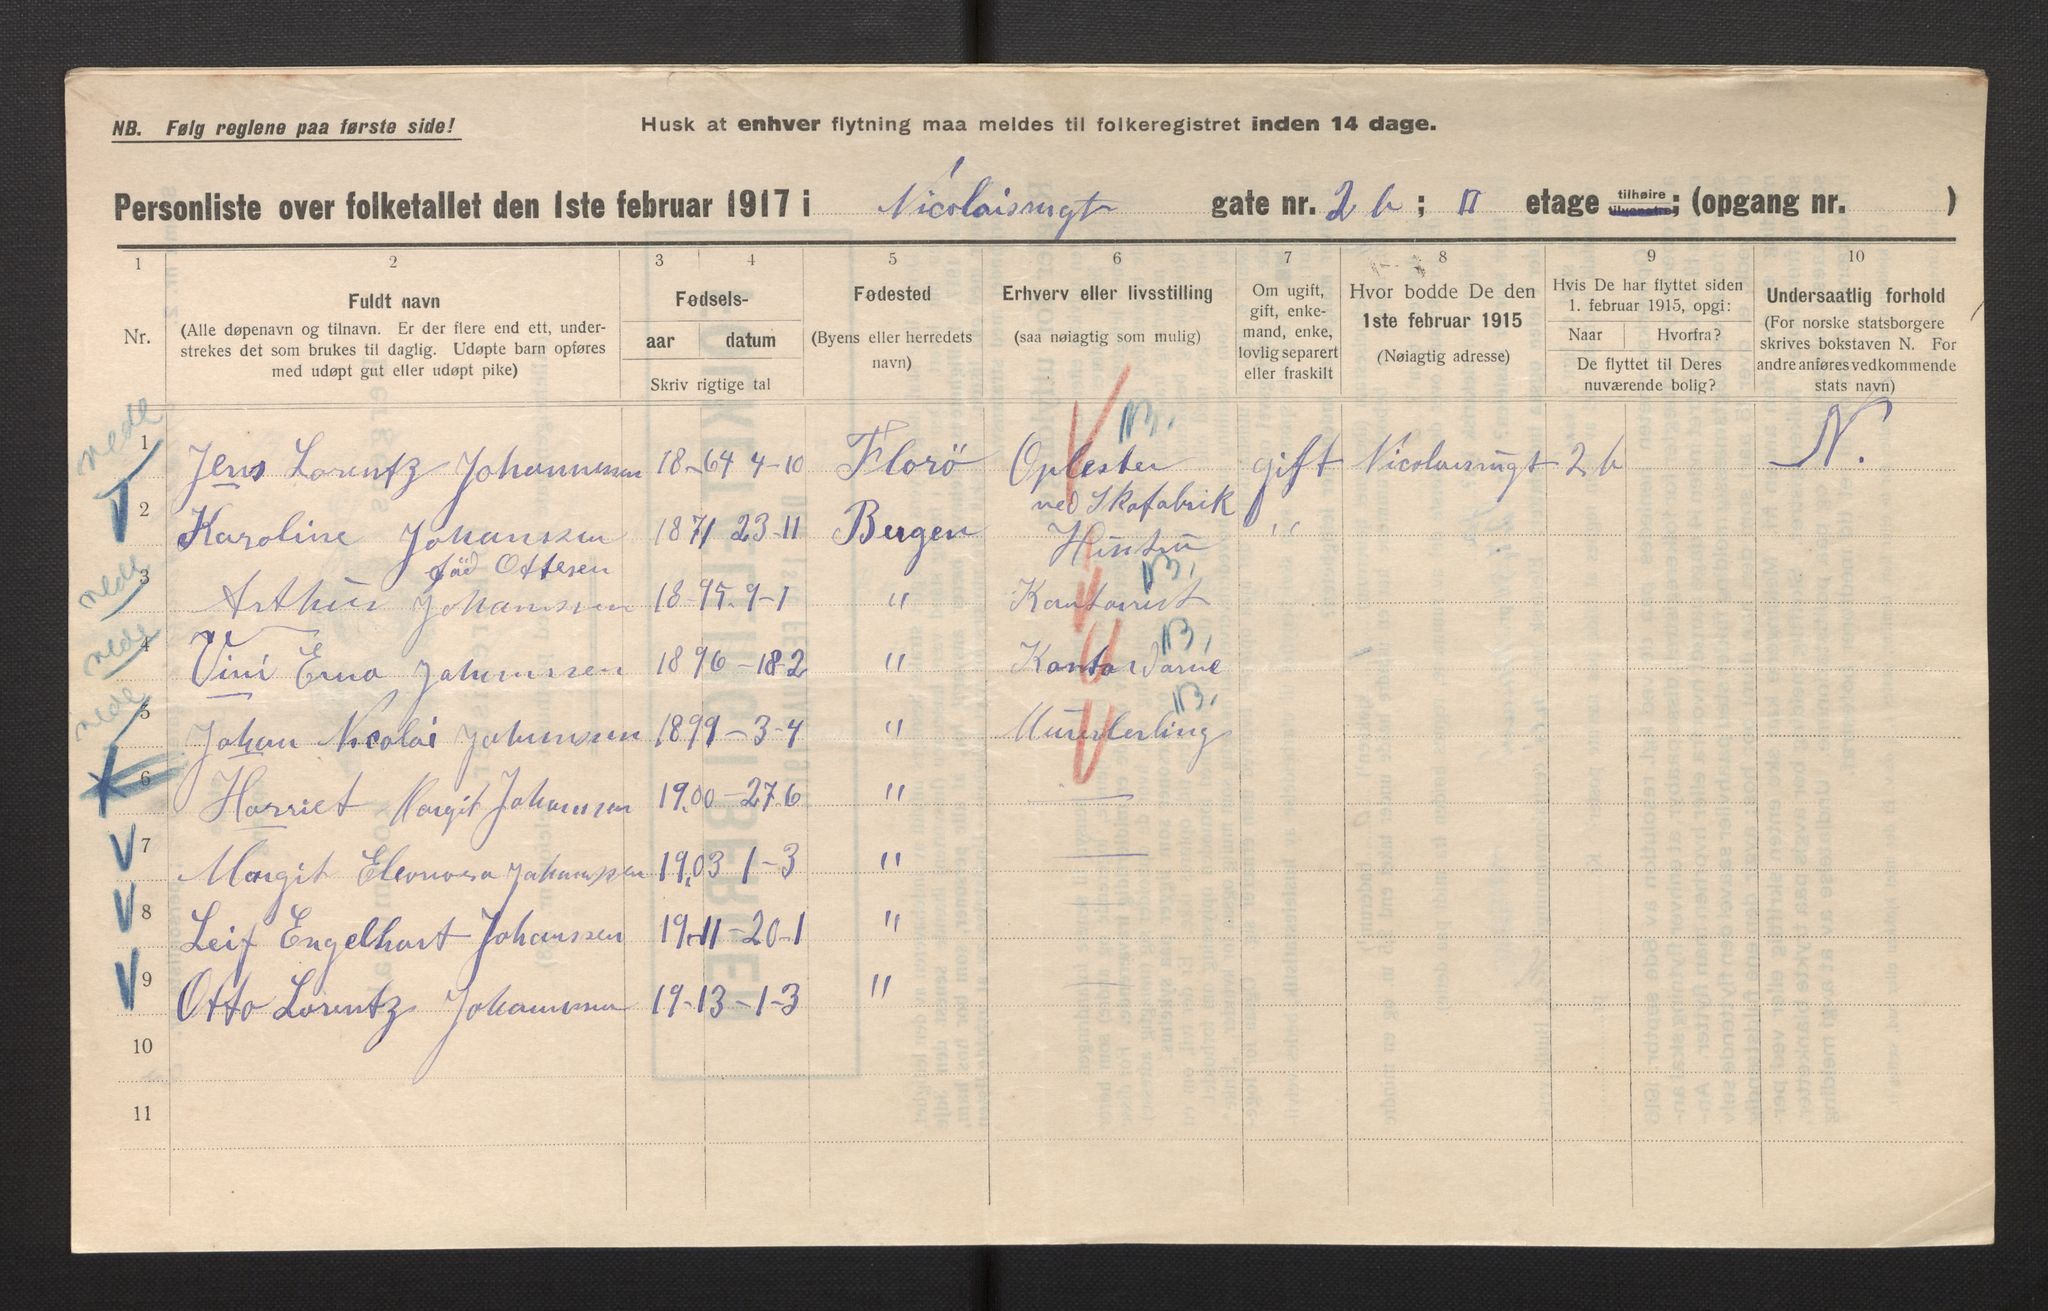 NB. Følg reglene paa første side!
Husk at enhver flytning maa meldes til folkeregistret inden 14 dage.
Personliste over folketallet den 1ste februar 1917 i Nicolaismgt gate nr. 2 b ; II etage tilhøire tilvenstre ; (opgang nr. )
1 2 3 4 5 6 7 8 9 10
Nr.
Fuldt navn
(Alle døpenavn og tilnavn. Er der flere end ett, under-
strekes det som brukes til daglig. Udøpte barn opføres
med udøpt gut eller udøpt pike)
Fødsels-
aar datum
Skriv rigtige tal
Fødested
(Byens eller herredets
navn)
Erhverv eller livsstilling
(saa nøiagtig som mulig)
Om ugift,
gift, enke-
mand, enke,
lovlig separert
eller fraskilt
Hvor bodde De den
1ste februar 1915
(Nøiagtig adresse)
Hvis De har flyttet siden
1. februar 1915, opgi:
Naar Hvorfra?
De flyttet til Deres
nuværende bolig?
Undersaatlig forhold
(For norske statsborgere
skrives bokstaven N. For
andre anføres vedkommende
stats navn)
nede 1 Jens Lorentz Johannessen 18-64 4-10 Florö Oplester NB. gift Nicolaismgt 2 b N.
ved Skofabrik
2 Karoline Johanssen 1871 23-11 Bergen Hustru "
fød Ottesen
nede 3 Arthur Johanssen 18-95. 9-1 " Kontorist NB.
nede 4 Vini Erna Johanssen 1896 - 18-2 " Kontordame NB.
nede 5 Johan Nicolai Johanssen 1899 - 3-4 " Murerlerling NB.
6 Harriet Margit Johanssen 19.00 - 27.6 " —
7 Margit Eleonora Johanssen 19.03 1-3 " —
8 Leif Engelhart Johanssen 19-11-20-1 "
9 Otto Lorentz Johanssen 19-13-1-3 "
10
11